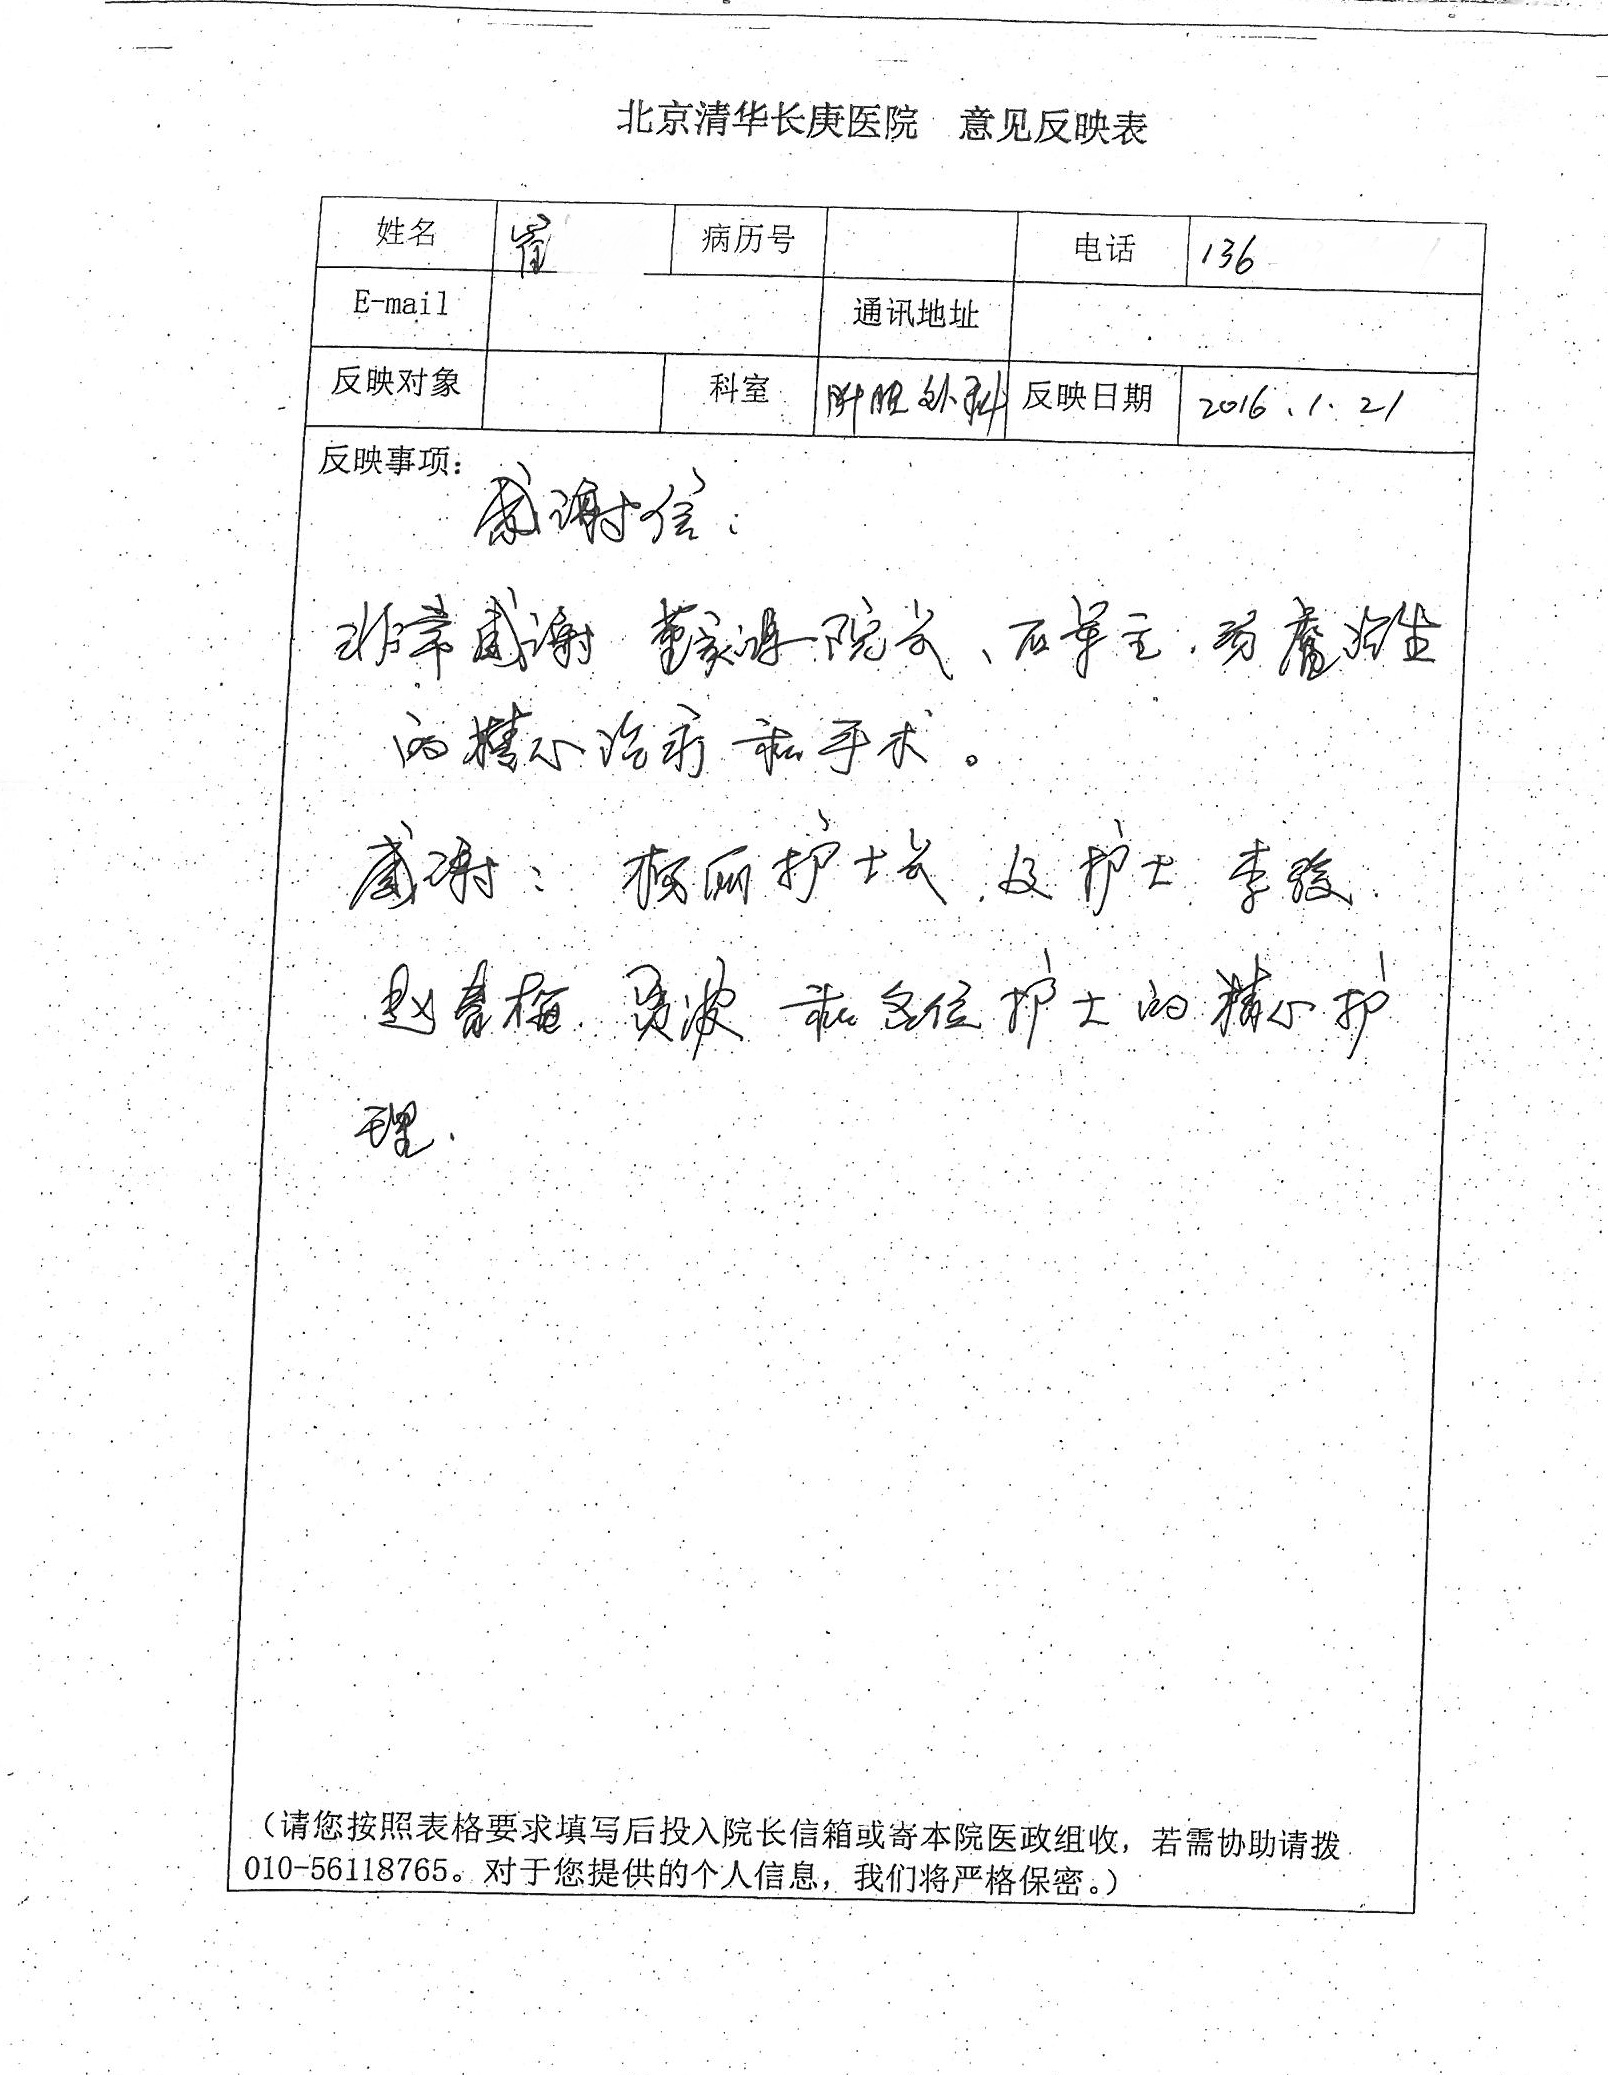 北京清华长庚医院 意见反映表
姓名 崔 病历号 电话 136
E-mail 通讯地址
反映对象 科室 肝胆外科 反映日期 2016.1.21
反映事项:
感谢信:
非常感谢 董家鸿院长、石军主. 医生
的精心治疗和手术。
感谢: 杨丽护士长 及护士 李
赵春梅. 波 和各位护士的精心护
理.
(请您按照表格要求填写后投入院长信箱或寄本院医政组收,若需协助请拨
010-56118765。对于您提供的个人信息,我们将严格保密。)